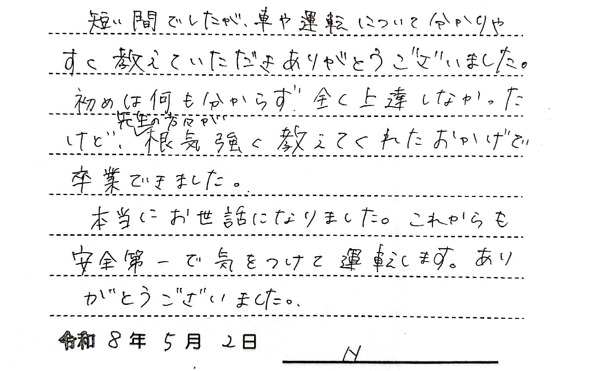 短い間でしたが、車や運転について分かりや
すく教えていただきありがとうございました。
初めは何も分からず全く上達しなかった
けど、先生の方々が根気強く教えてくれたおかげで
卒業できました。
本当にお世話になりました。これからも
安全第一で気をつけて運転します。あり
がとうございました。
令和8年5月2日
N